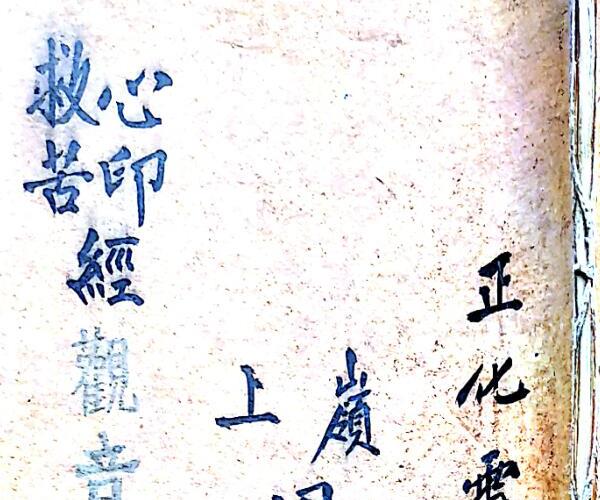 正化
嶺
上
心印
救苦
經
觀音